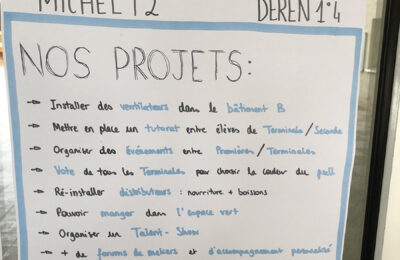 MICHEL T2 DEREN 1°4
NOS PROJETS :
⇨ Installer des ventilateurs dans le bâtiment B
⇨ Mettre en place un tutorat entre élèves de Terminale/Seconde
⇨ Organiser des Événements entre Premières/Terminales
⇨ Vote de tous les Terminales pour choisir la couleur du pull
⇨ Ré-installer distributeurs : nourriture + boissons
⇨ Pouvoir manger dans l'espace vert
⇨ Organiser un Talent-Show
⇨ + de forums de métiers et d'accompagnement personnalisé